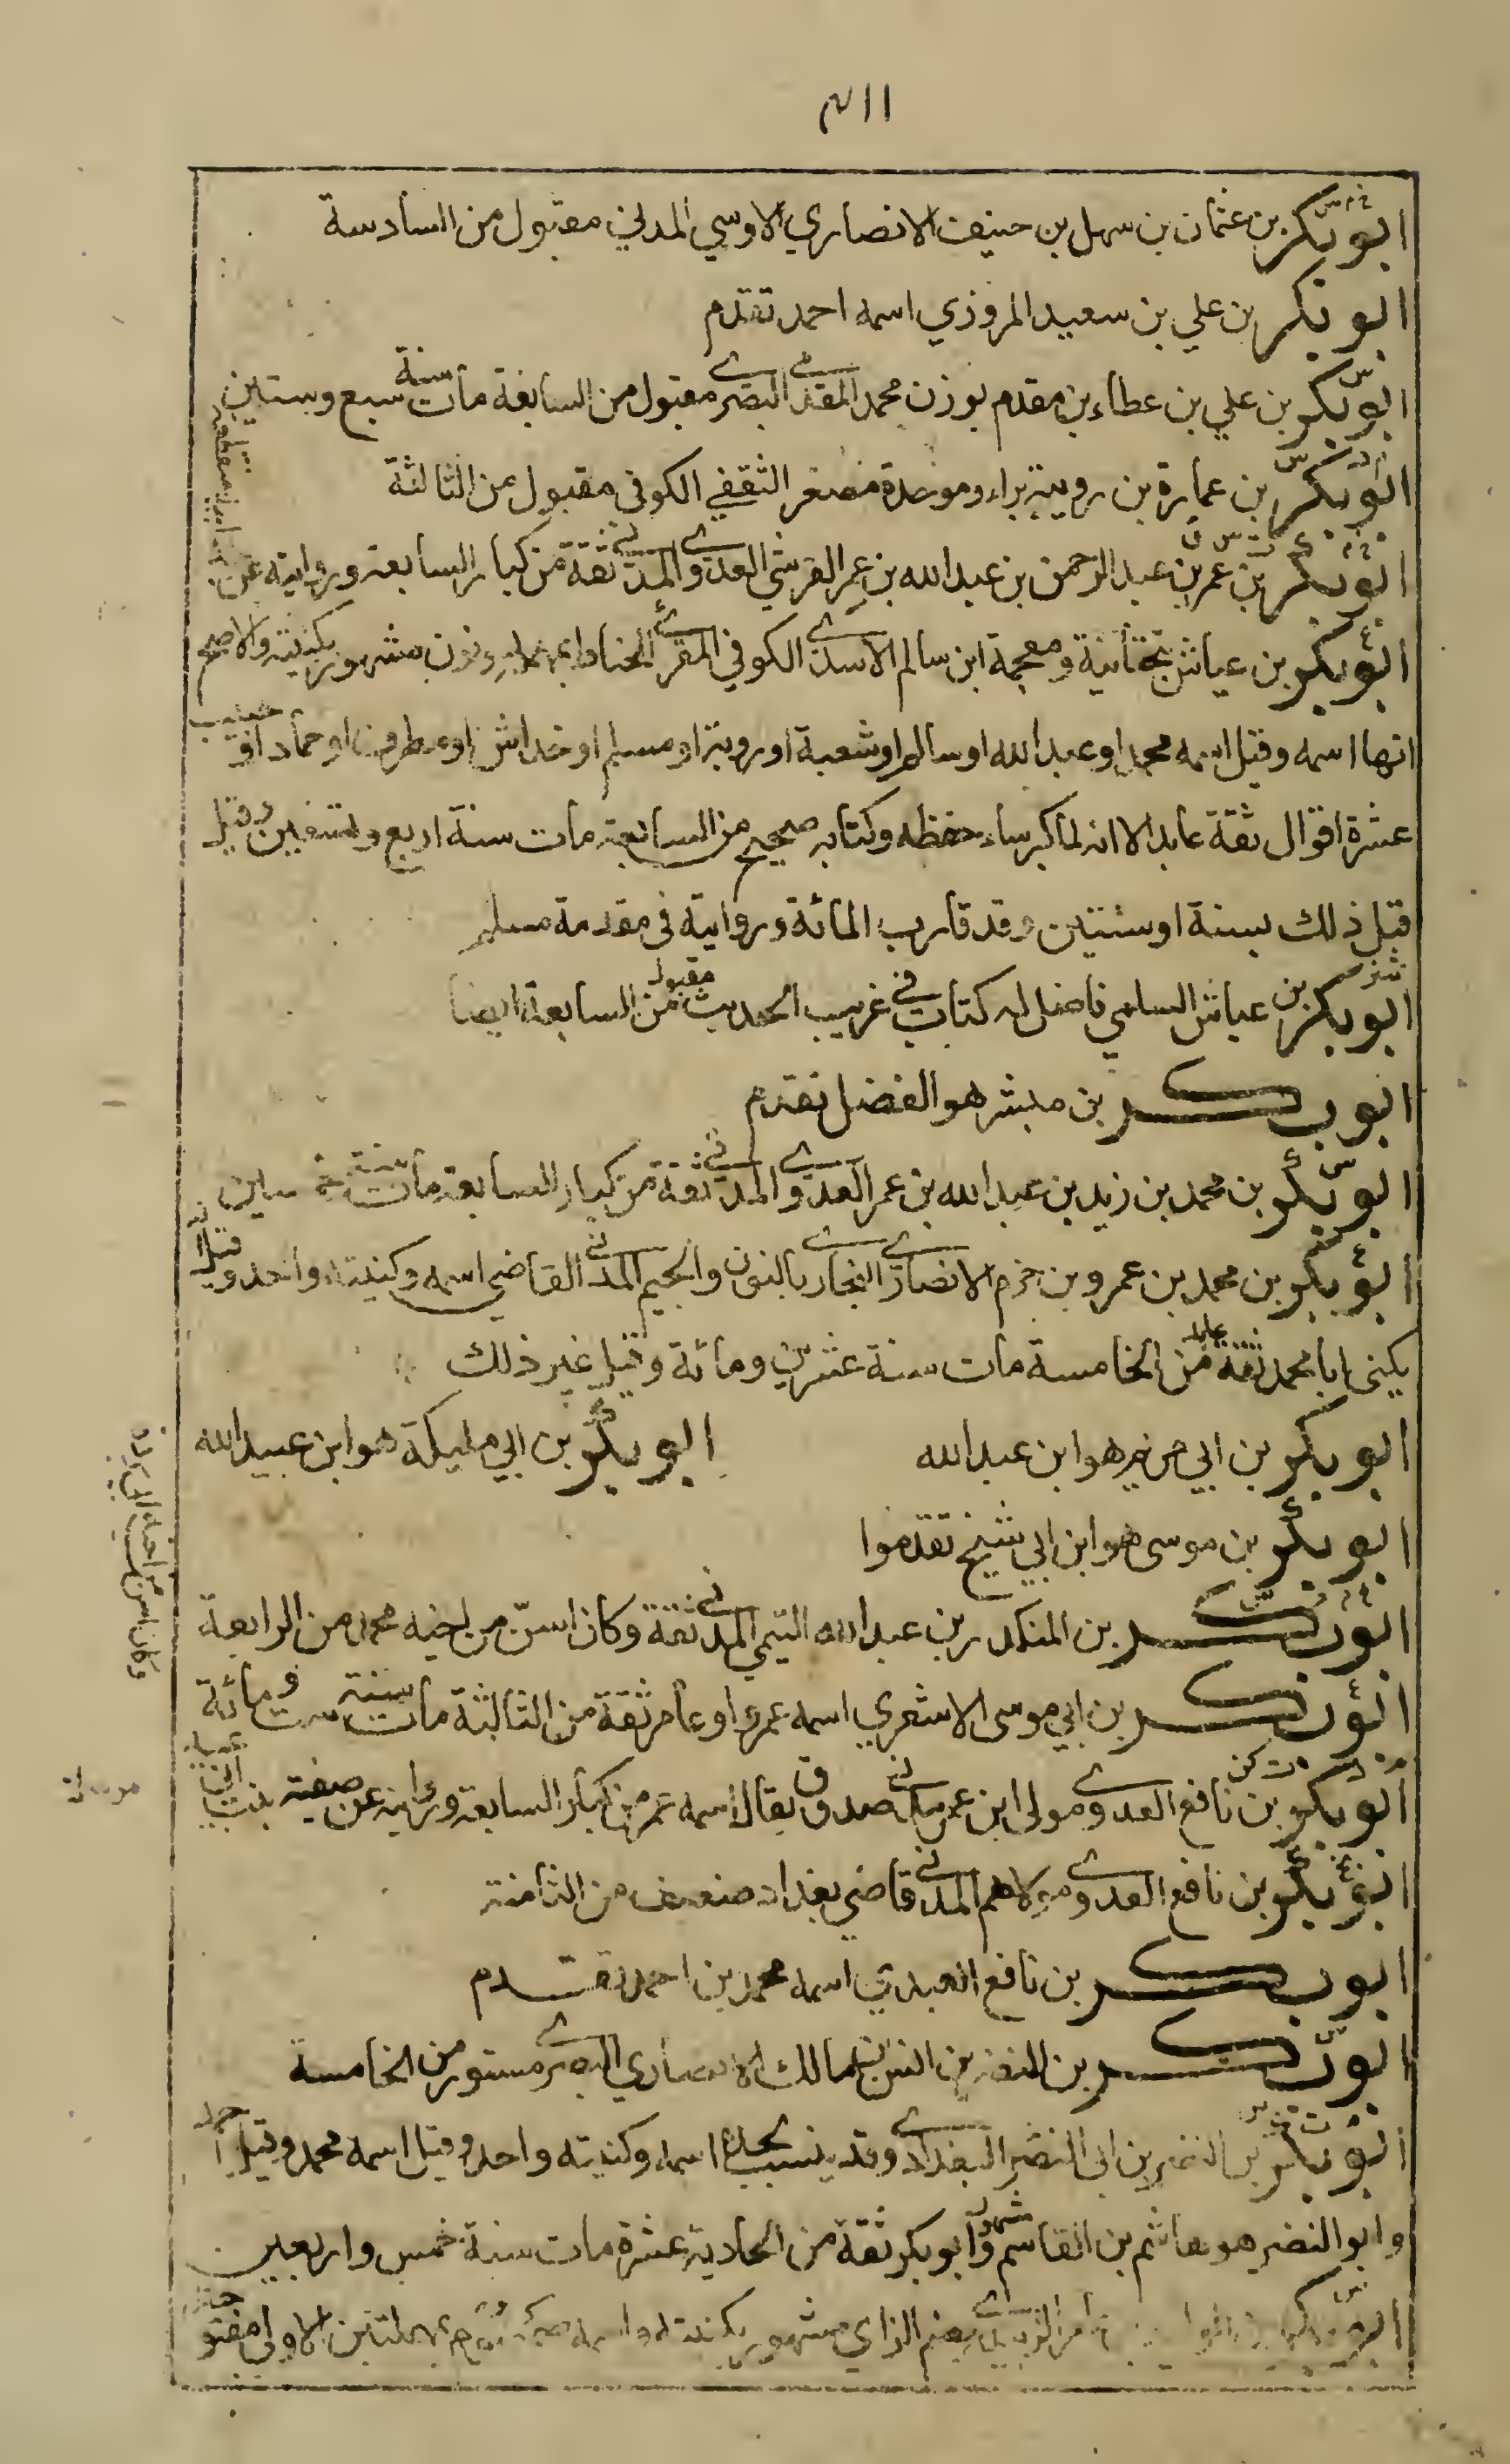 ٣١١
ابو بكر بن عثمان بن سهل بن حنيف الانصاري الاوسي المدني مقبول من السادسة
ابو بكر بن علي بن سعيد المروزي اسمه احمد تقدم
ابو بكر بن علي بن عطاء بن مقدم بوزن محمد المقدمي البصري مقبول من السابعة مات سنة سبع وستين
ابو بكر بن عمارة بن رويبة براء وموحدة مصغر الثقفي الكوفي مقبول من الثالثة
ابو بكر بن عمر بن عبد الرحمن بن عبد الله بن عمر القرشي العدوي المدني ثقة من كبار السابعة وروايته عن
ابو بكر بن عياش بتحتانية ومعجمة ابن سالم الاسدي الكوفي المقرئ الحناط بمهملة ونون مشهور بكنيته والاصح
انها اسمه وقيل اسمه محمد او عبد الله او سالم او شعبة او روبة او مسلم او خداش او مطرف او حماد او حبيب
عشرة اقوال ثقة عابد الا انه لما كبر ساء حفظه وكتابه صحيح من السابعة مات سنة اربع وتسعين وقيل
قبل ذلك بسنة او سنتين وقد قارب المائة وروايته في مقدمة مسلم
ابو بكر بن عياش السلمي فاضل له كتاب في غريب الحديث مقبول من السابعة ايضا
ابو بكر بن مبشر هو الفضل تقدم
ابو بكر بن محمد بن زيد بن عبد الله بن عمر العدوي المدني ثقة من كبار السابعة مات سنة
ابو بكر بن محمد بن عمرو بن حزم الانصاري النجاري بالنون والجيم المدني القاضي اسمه وكنيته واحد وقيل انه
يكنى ابا محمد ثقة عابد من الخامسة مات سنة عشرين ومائة وقيل غير ذلك
ابو بكر بن ابي مريم هو ابن عبد الله ابو بكر بن ابي مليكة هو ابن عبيد الله
ابو بكر بن موسى هو ابن ابي شيخ تقدموا
ابو بكر بن المنكدر بن عبد الله التيمي المدني ثقة وكان اسن من اخيه محمد من الرابعة
ابو بكر بن ابي موسى الاشعري اسمه عمرو او عامر ثقة من الثالثة مات سنة ست ومائة
ابو بكر بن نافع العدوي مولى ابن عمر مدني صدوق يقال اسمه عمر من كبار السابعة وروايته عن صفية بنت ابي عبيد
ابو بكر بن نافع العدوي مولاهم المدني قاضي بغداد ضعيف من الثامنة
ابو بكر بن نافع العبدي اسمه محمد بن احمد تقدم
ابو بكر بن النضر بن انس بن مالك الانصاري البصري مستور من الخامسة
ابو بكر بن النضر بن ابي النضر البغدادي وقد ينسب لجده اسمه وكنيته واحد وقيل اسمه محمد وقيل احمد
وابو النضر هو هاشم بن القاسم مشهور وابو بكر ثقة من الحادية عشرة مات سنة خمس واربعين
ابو بكر بن الزبيدي بضم الزاي مشهور بكنيته واسمه بمهملتين الاولى مفتو